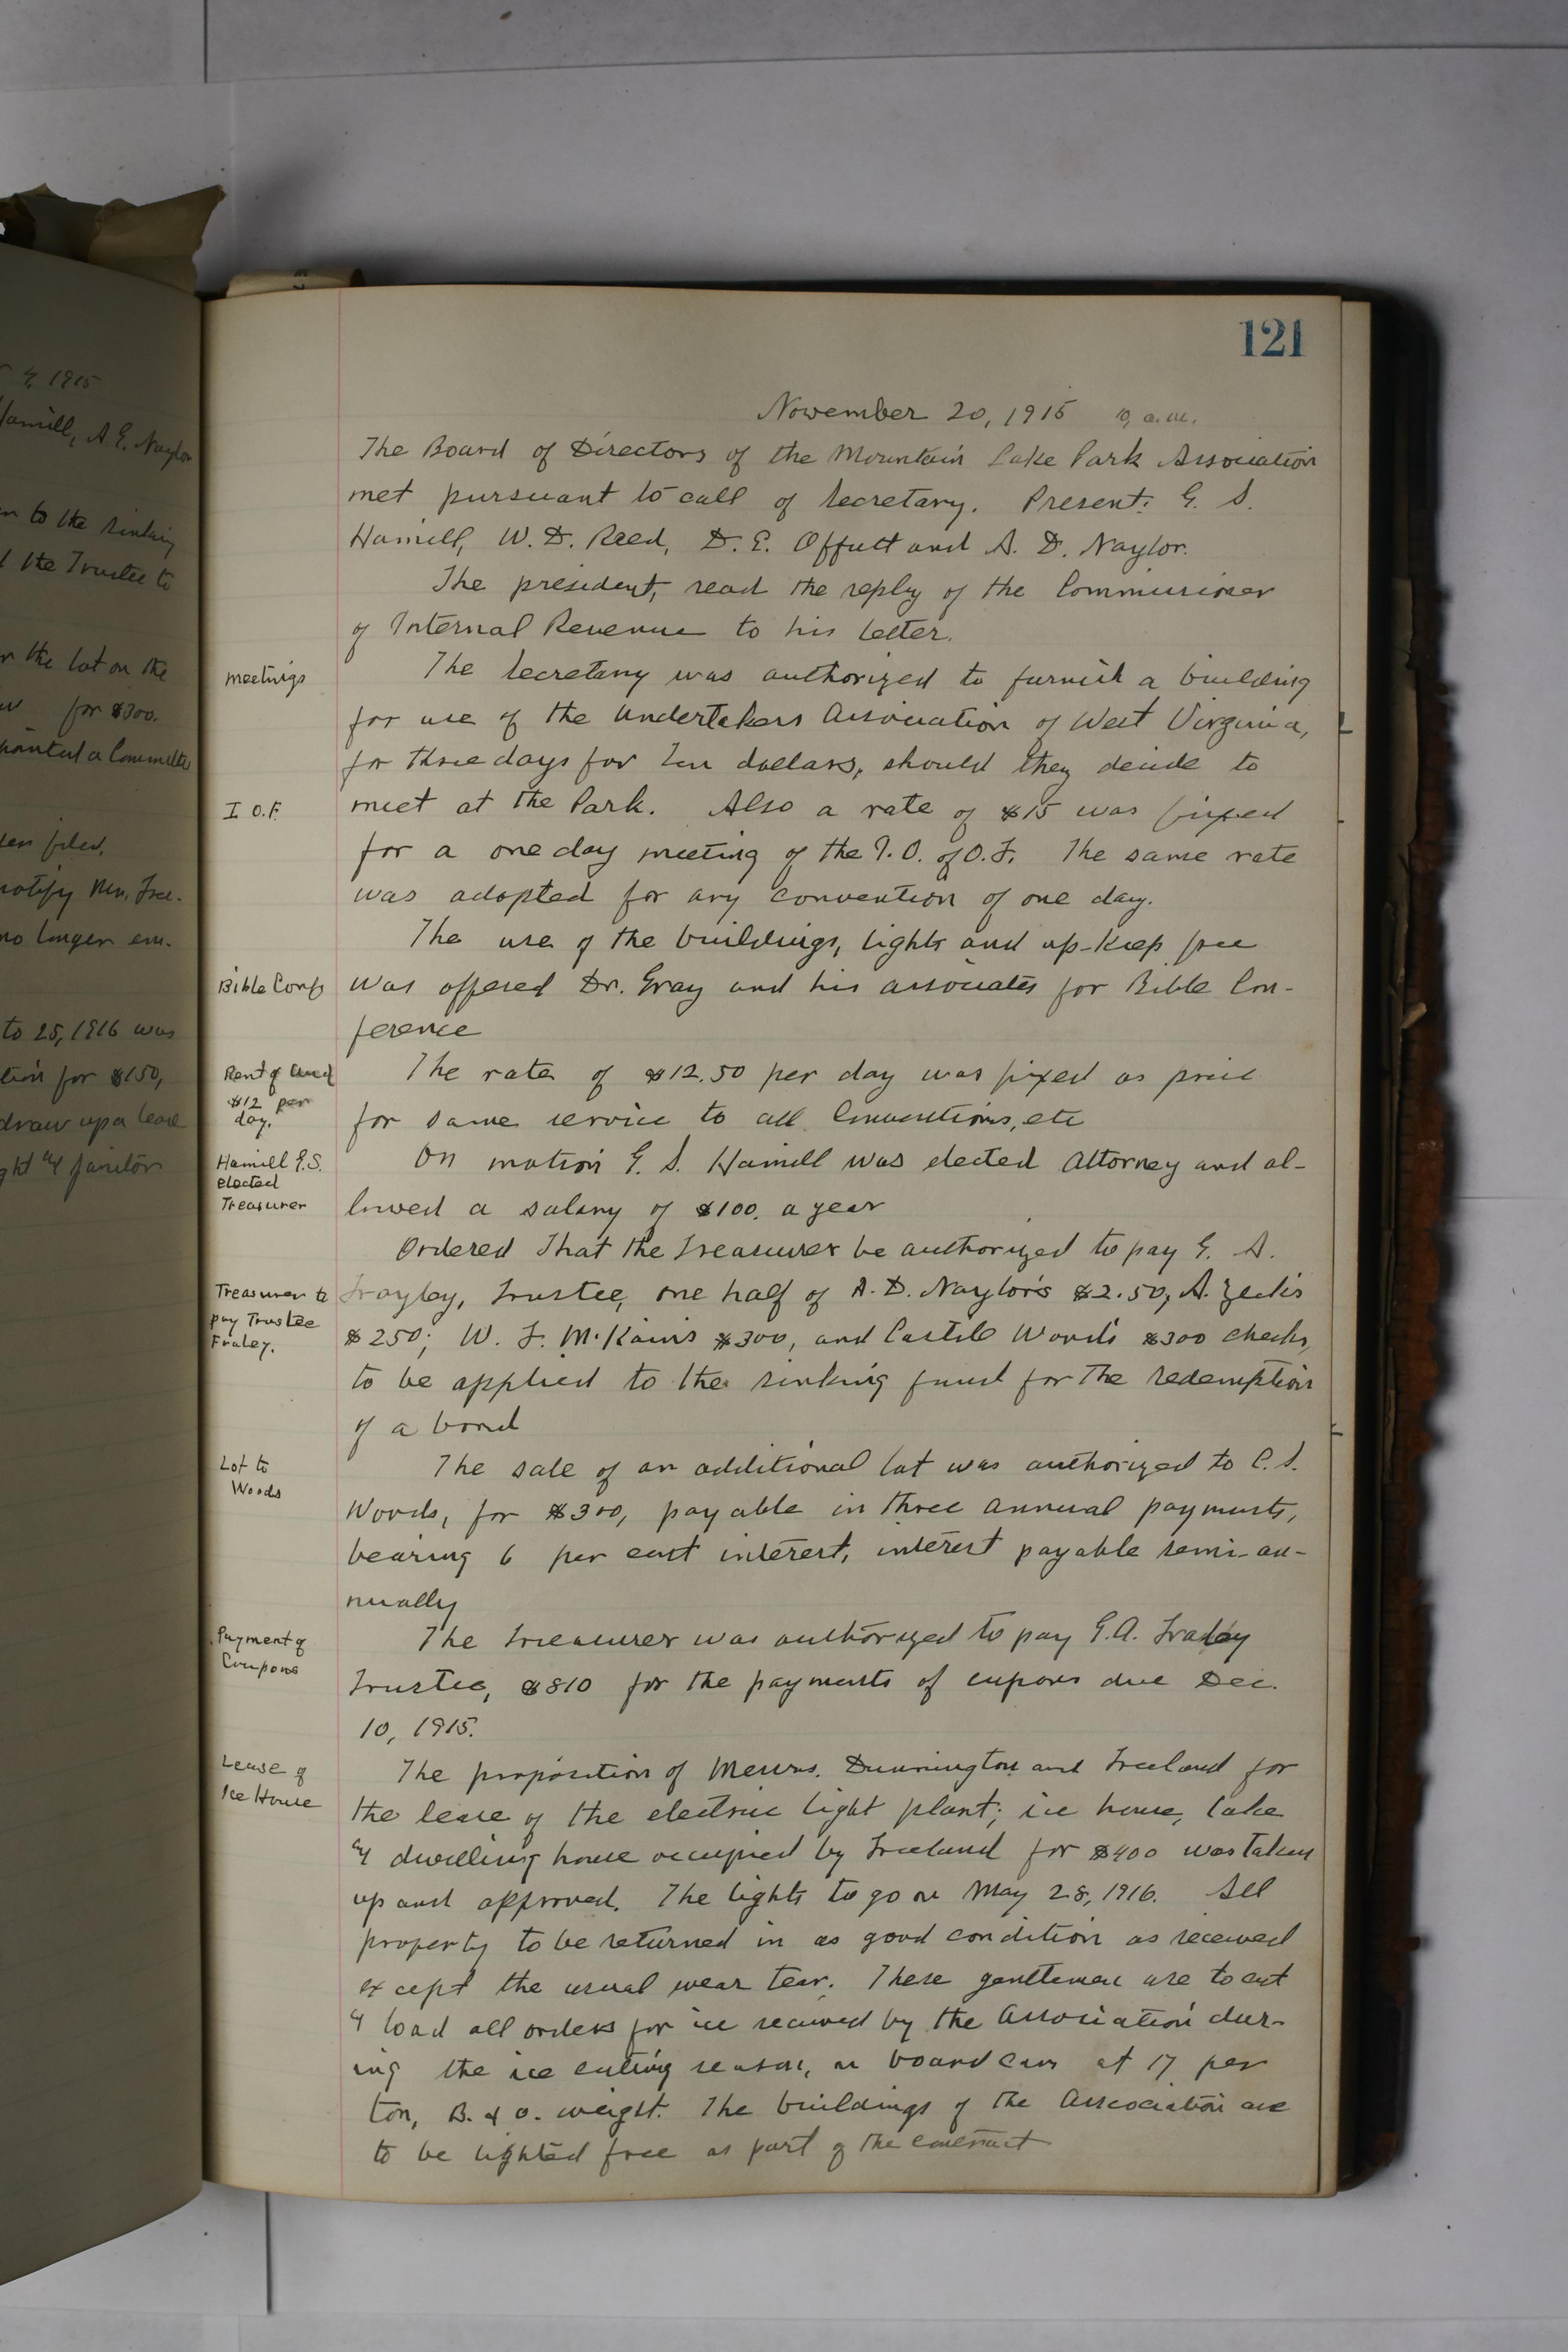 121
November 20, 1915 9, a.m.
The Board of Directors of the Mountain Lake Park Association
met pursuant to call of secretary. Present: G. S.
Hamill, W. D. Reed, D. E. Offutt and A. D. Naylor.
The president, read the reply of the Commissioner
of Internal Revenue to his letter.
meetings
The secretary was authorized to furnish a building
for use of the Undertakers Association of West Virginia,
for three days for ten dollars, should they decide to
I O.F.
meet at the Park. Also a rate of $15 was fixed
for a one day meeting of the I. O. of O. F. The same rate
was adopted for any convention of one day.
The use of the buildings, lights and up-keep free
Bible Conf
was offered Dr. Gray and his associates for Bible Con-
ference
Rent of Aud
$12 per
day.
The rate of $12.50 per day was fixed as price
for same service to all Conventions, etc
Hamill G.S.
elected
Treasurer
On motion G. S. Hamill was elected Attorney and al-
lowed a salary of $100. a year
Ordered That the Treasurer be authorized to pay G. A.
Treasurer to
pay Trustee
Fraley.
Frayley, Trustee, one half of A. D. Naylor's $2.50, A.
$250; W. F. McKain's $300, and Castile Woods $300 checks,
to be applied to the sinking fund for the redemption
of a bond
Lot to
Woods
The sale of an additional lot was authorized to C. S.
Woods, for $300, payable in three annual payments,
bearing 6 per cent interest, interest payable semi-an-
nually
Payment of
Coupons
The treasurer was authorized to pay G. A. Fraley
Trustee, $810 for the payments of cupons due Dec.
10, 1915.
Lease of
Ice House
The proposition of Messrs. Dunnington and Freeland for
the lease of the electric light plant; ice house, lake
& dwelling house occupied by Freeland for $400 was taken
up and approved. The lights to go on May 28, 1916. All
property to be returned in as good condition as received
except the usual wear tear. These gentlemen are to cut
& load all orders for ice received by the Association dur-
ing the ice cutting season, on board cars at 17 per
ton, B. & O. weight. The buildings of the Association are
to be lighted free as part of the contract